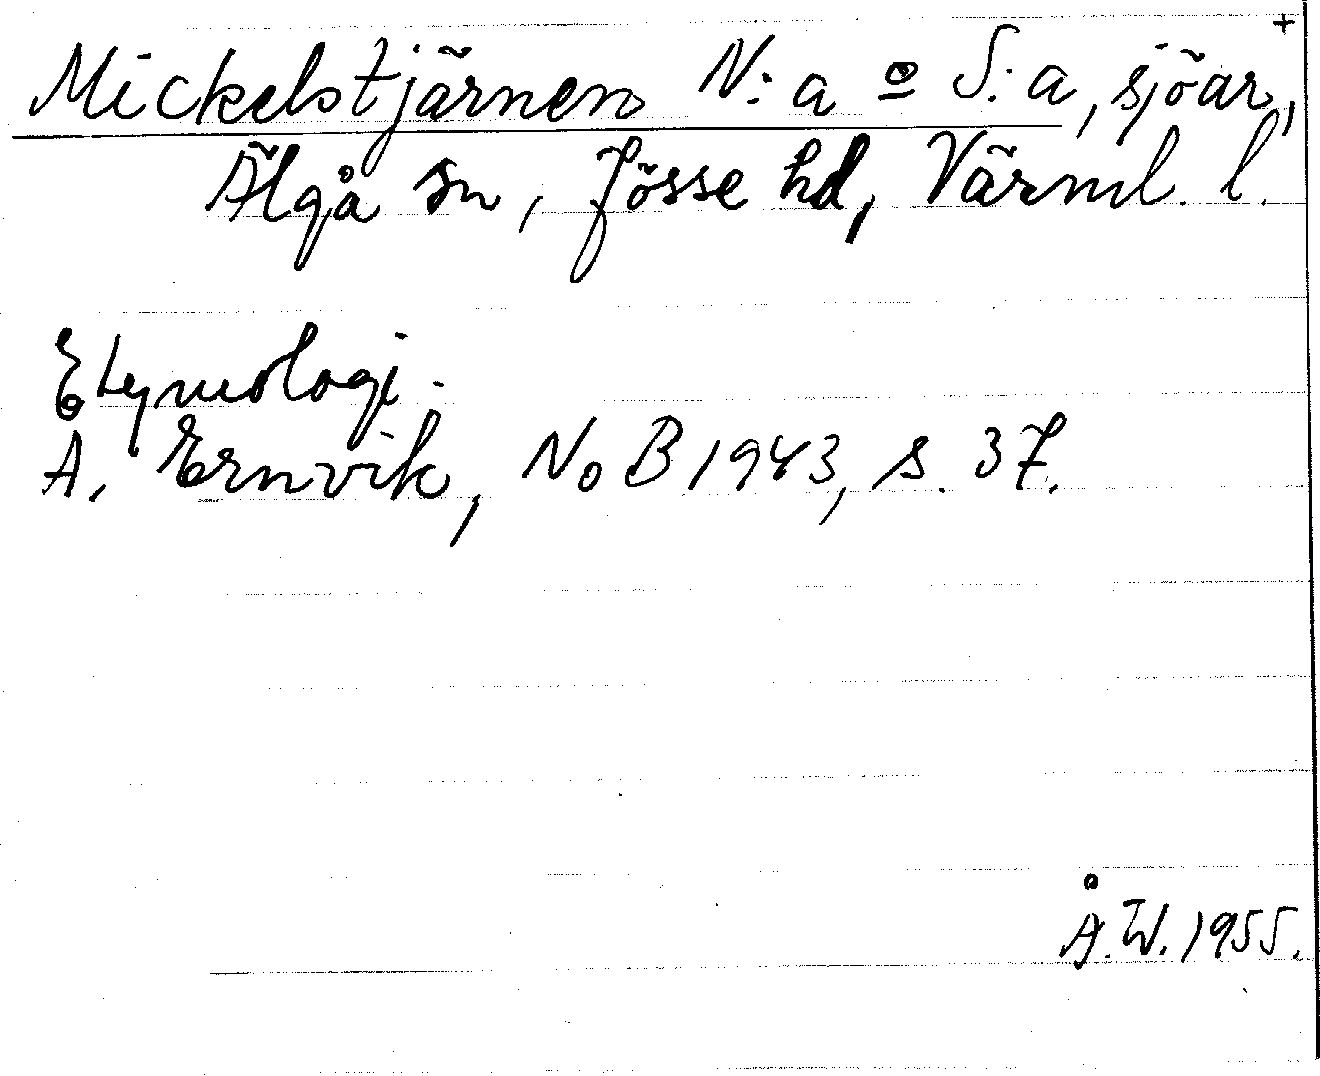 +
Mickelstjärnen N:a o S:a, sjöar,
Älgå sn, Jösse hd, Värml. l.
Etymologi.
A. Ernvik, NoB 1943, s. 37.
Å.W. 1955.